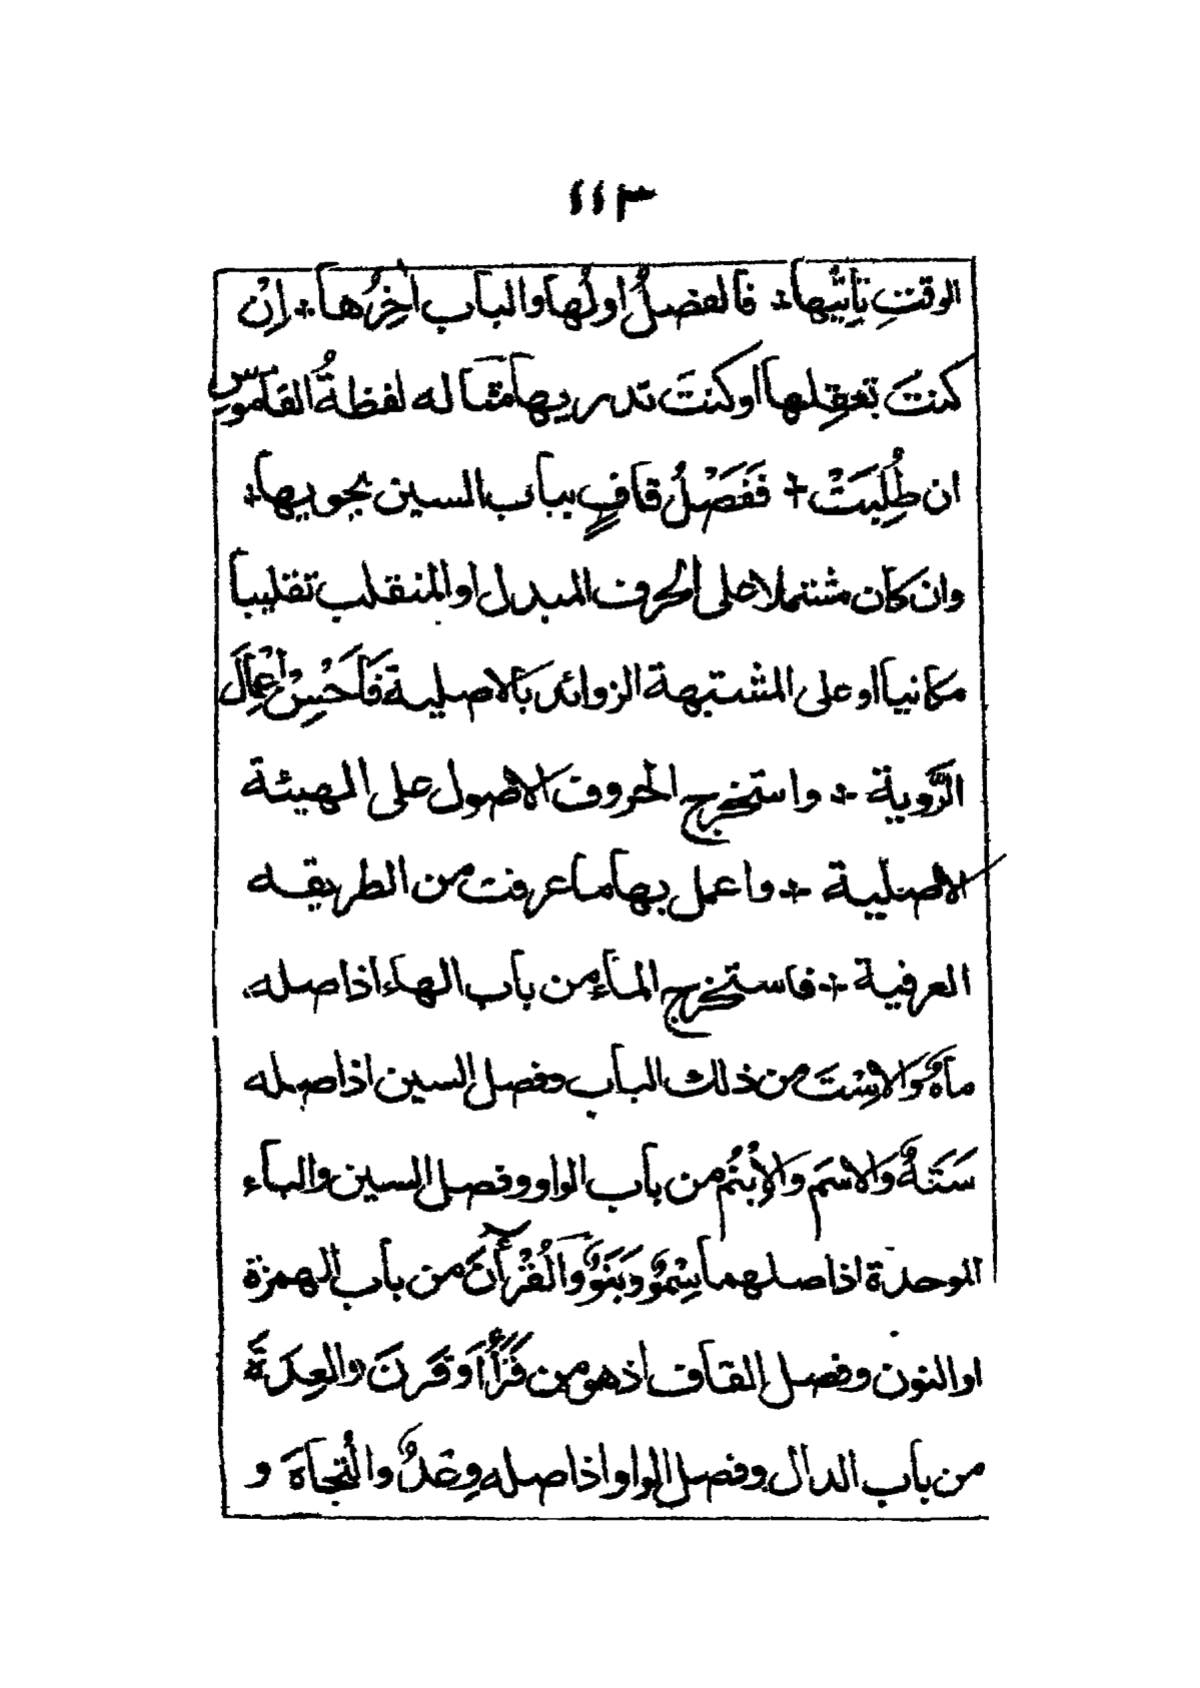 ١١٣
الوقتِ تأتيها ÷ فالفصلُ اولُها والباب اٰخِرُها ÷ اِنْ
كنتَ تعقِلها اوكنتَ تدريها مثاله لفظةُ القاموسِ
ان طُلِبَتْ ÷ فَفَصْلُ قافٍ بباب السين يحويها ÷
وان كان مشتملا على الحرف المبدل او المنقلب تقليبا
مكانيا او على المشتبهة الزوائد بالاصلية فَاَحْسِنْ اِعْمالَ
الرَّوية ÷ واستخرج الحروف الاصول على الهيئة
الاصلية ÷ واعمل بها ما عرفت من الطريقه
العرفية ÷ فاستخرج الماء من باب الهاء اذاصله
ماهٌ وَالاسْتَ من ذلك الباب وفصل السين اذاصله
سَتَهٌ وَالاسمَ والاِبْنُم من باب الواو وفصل السين والباء
الموحدة اذاصلهما سِمْوٌ وبَنَوٌ وَالْقُرْاٰنَ من باب الهمزة
او النون وفصل القاف اذهو من قَرَأَ اَوقَرنَ والعِدَةَ
من باب الدال وفصل الواو اذاصله وِعْدٌ والتُجاهَ و